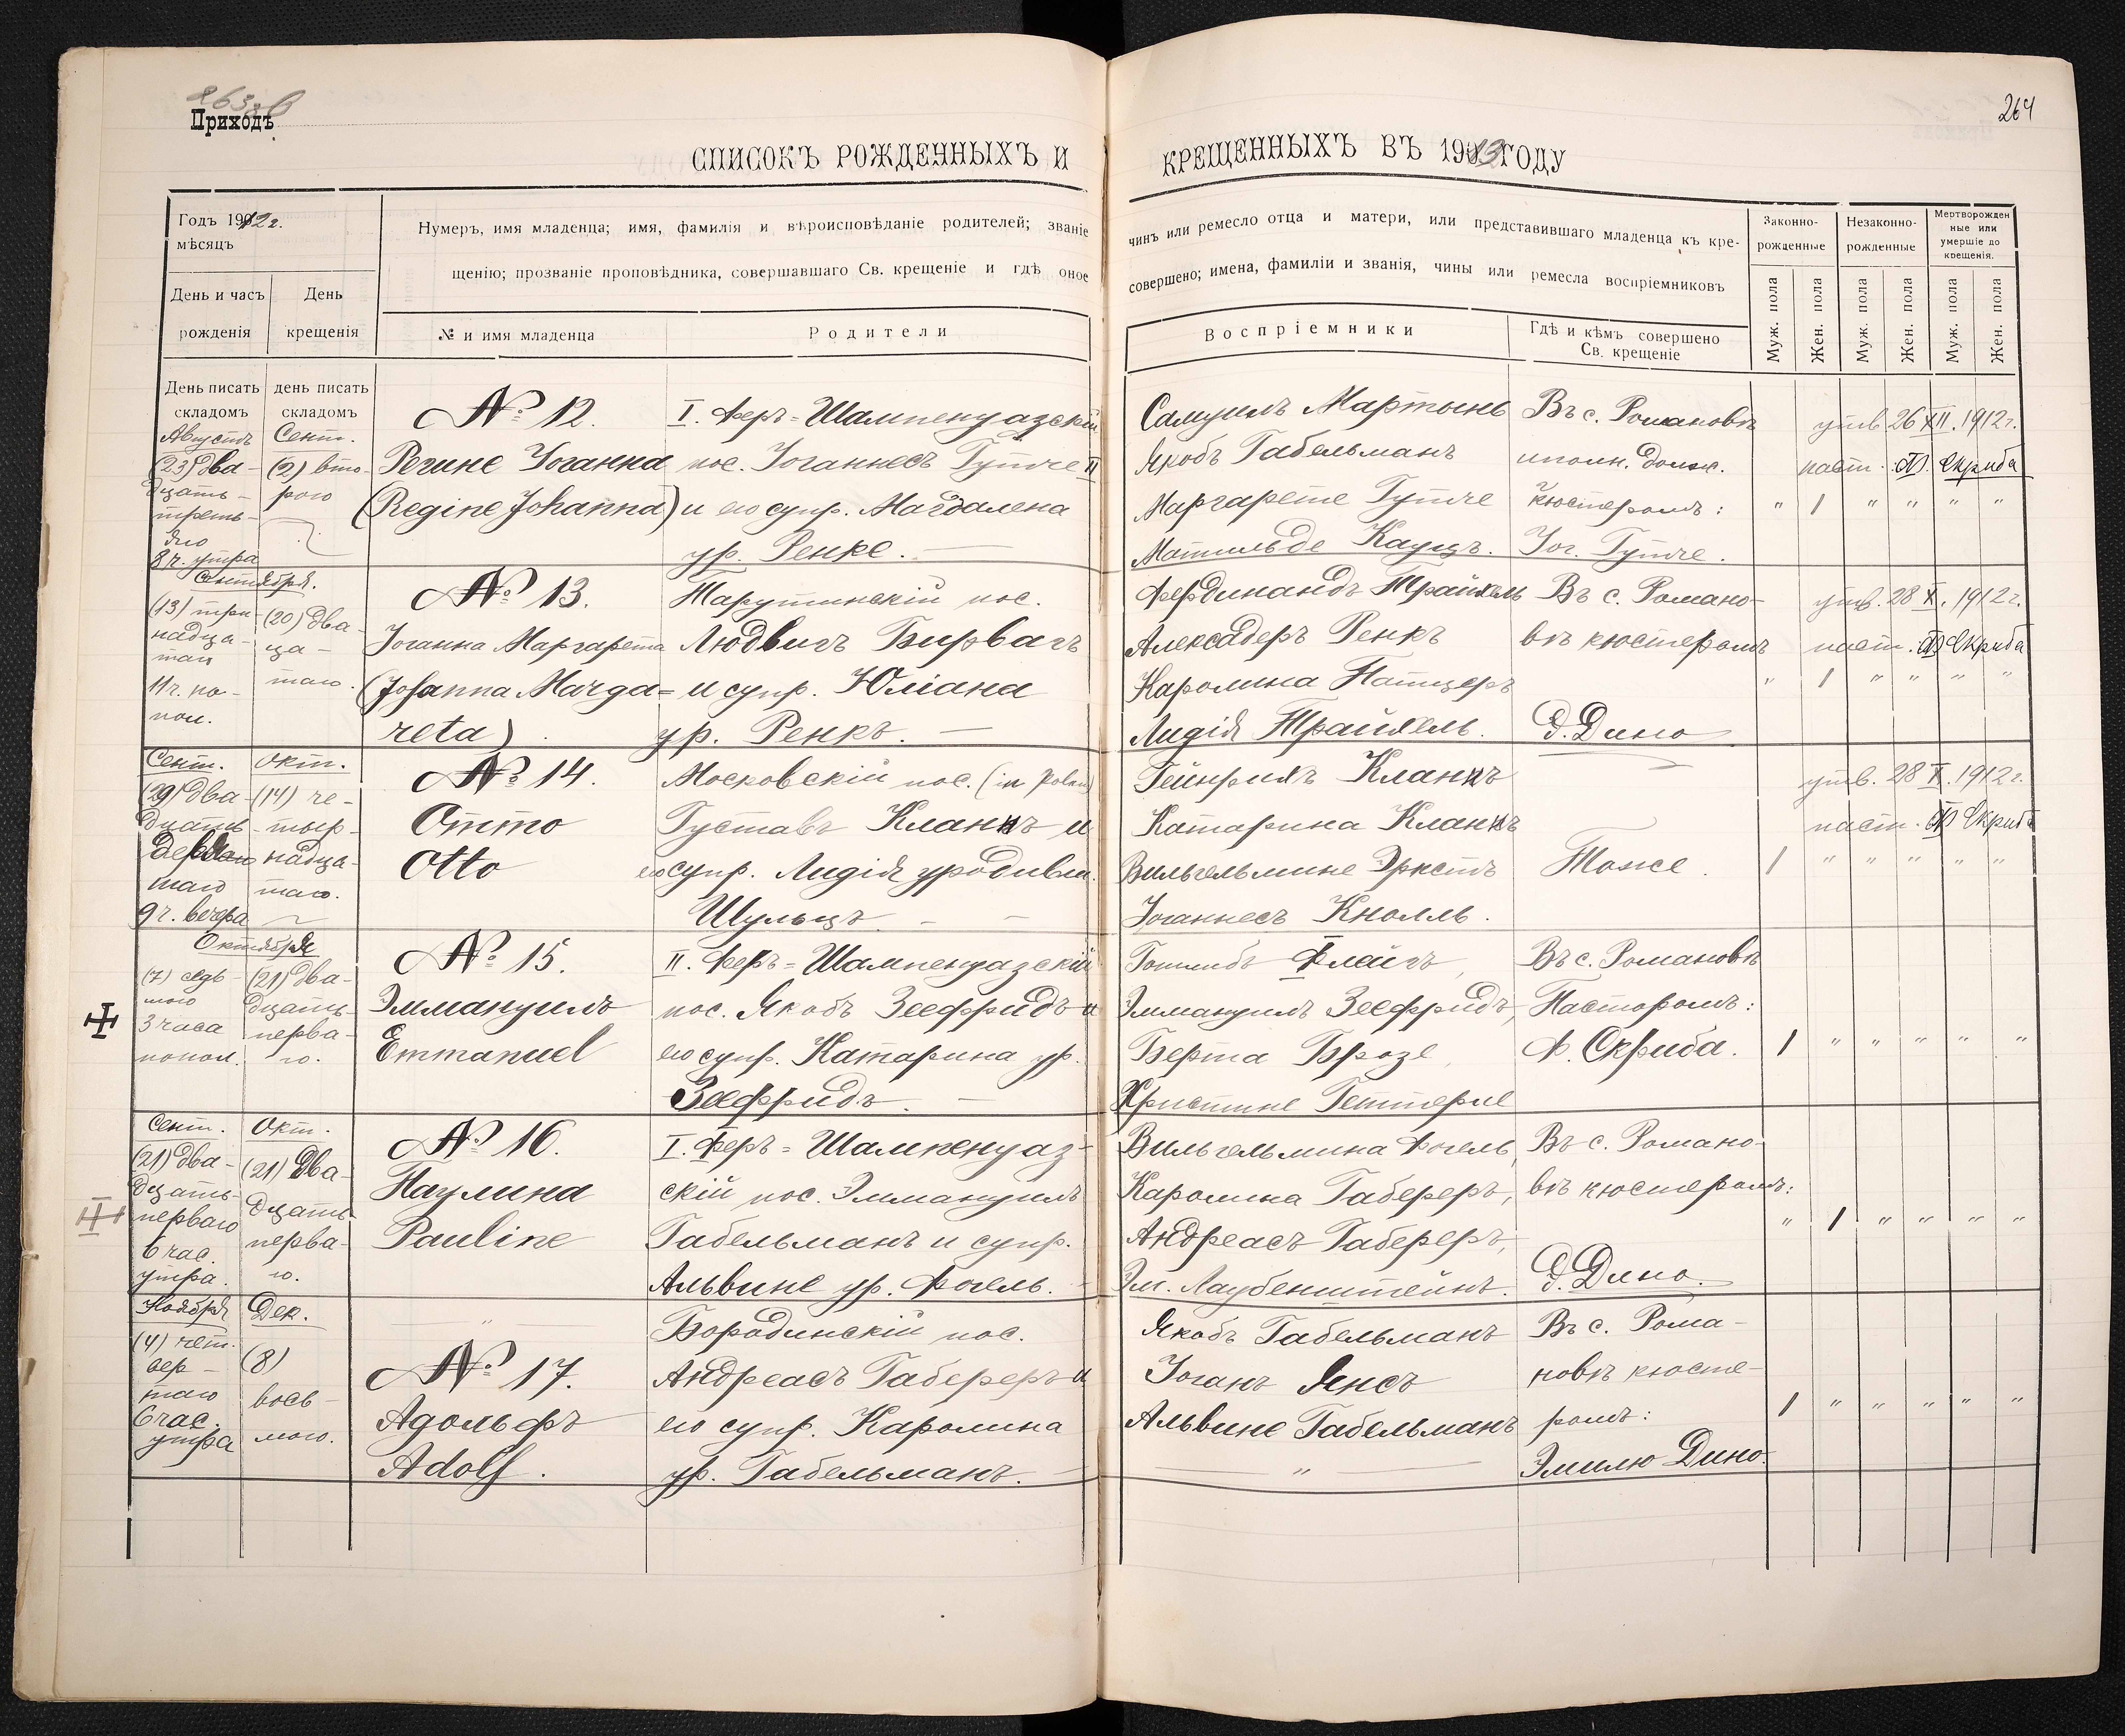 263 об
Приходъ
264
СПИСОКЪ РОЖДЕННЫХЪ И КРЕЩЕННЫХЪ ВЪ 1913 ГОДУ
Годъ 1912 г.
мѣсяцъ
День и часъ рожденія
День крещенія
Нумеръ, имя младенца; имя, фамилія и вѣроисповѣданіе родителей; званіе чинъ или ремесло отца и матери, или представившаго младенца къ кре-
щенію; прозваніе проповѣдника, совершавшаго Св. крещеніе и гдѣ оное совершено; имена, фамиліи и званія, чины или ремесла воспріемниковъ
№ и имя младенца
Родители
Воспріемники
Гдѣ и кѣмъ совершено
Св. крещеніе
Законно-
рожденные
Незаконно-
рожденные
Мертворожден
ные или
умершіе до
крещенія.
Муж. пола
Жен. пола
Муж. пола
Жен. пола
Муж. пола
Жен. пола
День писать
складомъ
день писать
складомъ
Августъ
(23) два-
дцать-
треть-
яго
8 ч. утра
Сент.
(2) вто-
рого
№ 12.
Регине Іоганна
(Regine Johanna)
I. Феръ=Шампенуазскій
пос. Іоганнесъ Гутче II
и его супр. Магдалена
ур. Ренке.
Самуилъ Мартынъ
Якобъ Габельманъ
Маргарете Гутче
Матильде Кауцъ.
Въ с. Романовкѣ
исполн. долж.
кюстеромъ:
Іог. Гутче.
утв. 26 XII. 1912 г.
паст. Ф. Скриба
" 1 " " " "
Сентября.
(13) три-
надца-
таго
11 ч. по-
пол.
(20) два-
ца-
таго.
№ 13.
Іоганна Маргарета
(Johanna Marga=
reta)
Тарутинскій пос.
Людвигъ Бирвагъ
и супр. Юліана
ур. Ренкъ.
Фердинандъ Трайхель
Александеръ Ренкъ
Каролина Натцеръ
Лидія Трайхель.
Въ с. Романо-
вкѣ кюстеромъ
Э. Дино
утв. 28 X. 1912 г.
паст. Ф. Скриба
" 1 " " " "
Сент.
(29) два-
дцать
девя-
таго
9 ч. вечера
Окт.
(14) че-
тыр-
надца-
таго.
№ 14.
Отто
Otto
Московскій пос. (in Polen)
Густавъ Кланкъ и
его супр. Лидія уродивш.
Шульцъ
Гейнрихъ Кланкъ
Катарина Кланкъ
Вильгельмине Эрнстъ
Іоганнесъ Кнолль.
Тоже.
утв. 28 X. 1912 г.
паст. Ф. Скриба
1 " " " " "
Октября
(7) седь-
мого
3 часа
попол.
(21) два-
дцать-
перва-
го.
№ 15.
Эммануилъ
Emmanuel
II. Феръ=Шампенуазскій
пос. Якобъ Зеефридъ и
его супр. Катарина ур.
Зеефридъ.
Готлибъ Флайгъ,
Эммануилъ Зеефридъ,
Берта Брозе,
Христине Геттерле
Въ с. Романовкѣ
Пасторомъ:
Ф. Скриба.
1 " " " " "
Сент.
(21) два-
дцать-
перваго
6 час.
утра.
Окт.
(21) два-
дцать
перва-
го.
№ 16.
Паулина
Pauline
I. Феръ=Шампенуаз-
скій пос. Эммануилъ
Габельманъ и супр.
Альвине ур. Фогель.
Вильгельмина Фогель,
Каролина Габереръ,
Андреасъ Габереръ,
Эм. Лаубенштейнъ.
Въ с. Романо-
вкѣ кюстеромъ:
Э. Дино.
" 1 " " " "
Ноября
(4) чет-
вер-
таго
6 час.
утра
Дек.
(8)
вось-
мого.
"
№ 17.
Адольфъ
Adolf.
Бородинскій пос.
Андреасъ Габереръ и
его супр. Каролина
ур. Габельманъ.
Якобъ Габельманъ
Іоганъ Янсъ
Альвине Габельманъ
"
Въ с. Рома-
новкѣ кюсте-
ромъ:
Эмилю Дино.
1 " " " " "